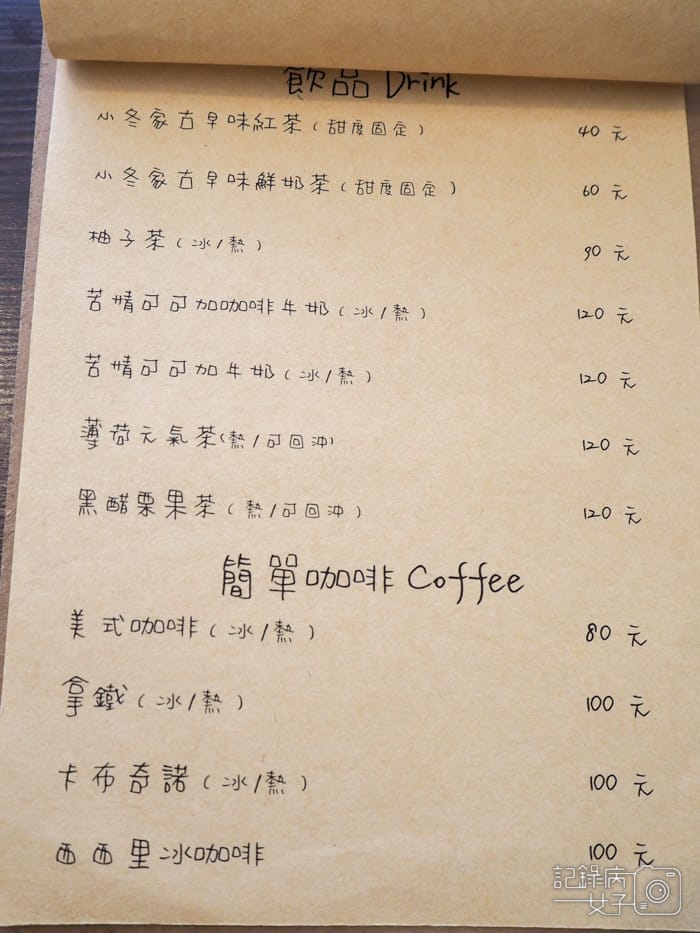 飲品 Drink
小冬家古早味紅茶(甜度固定) 40元
小冬家古早味鮮奶茶(甜度固定) 60元
柚子茶(冰/熱) 90元
苦情可可加咖啡牛奶(冰/熱) 120元
苦情可可加牛奶(冰/熱) 120元
薄荷元氣茶(熱/可回沖) 120元
黑醋栗果茶(熱/可回沖) 120元
簡單咖啡 Coffee
美式咖啡(冰/熱) 80元
拿鐵(冰/熱) 100元
卡布奇諾(冰/熱) 100元
西西里冰咖啡 100元
記錄病
女子